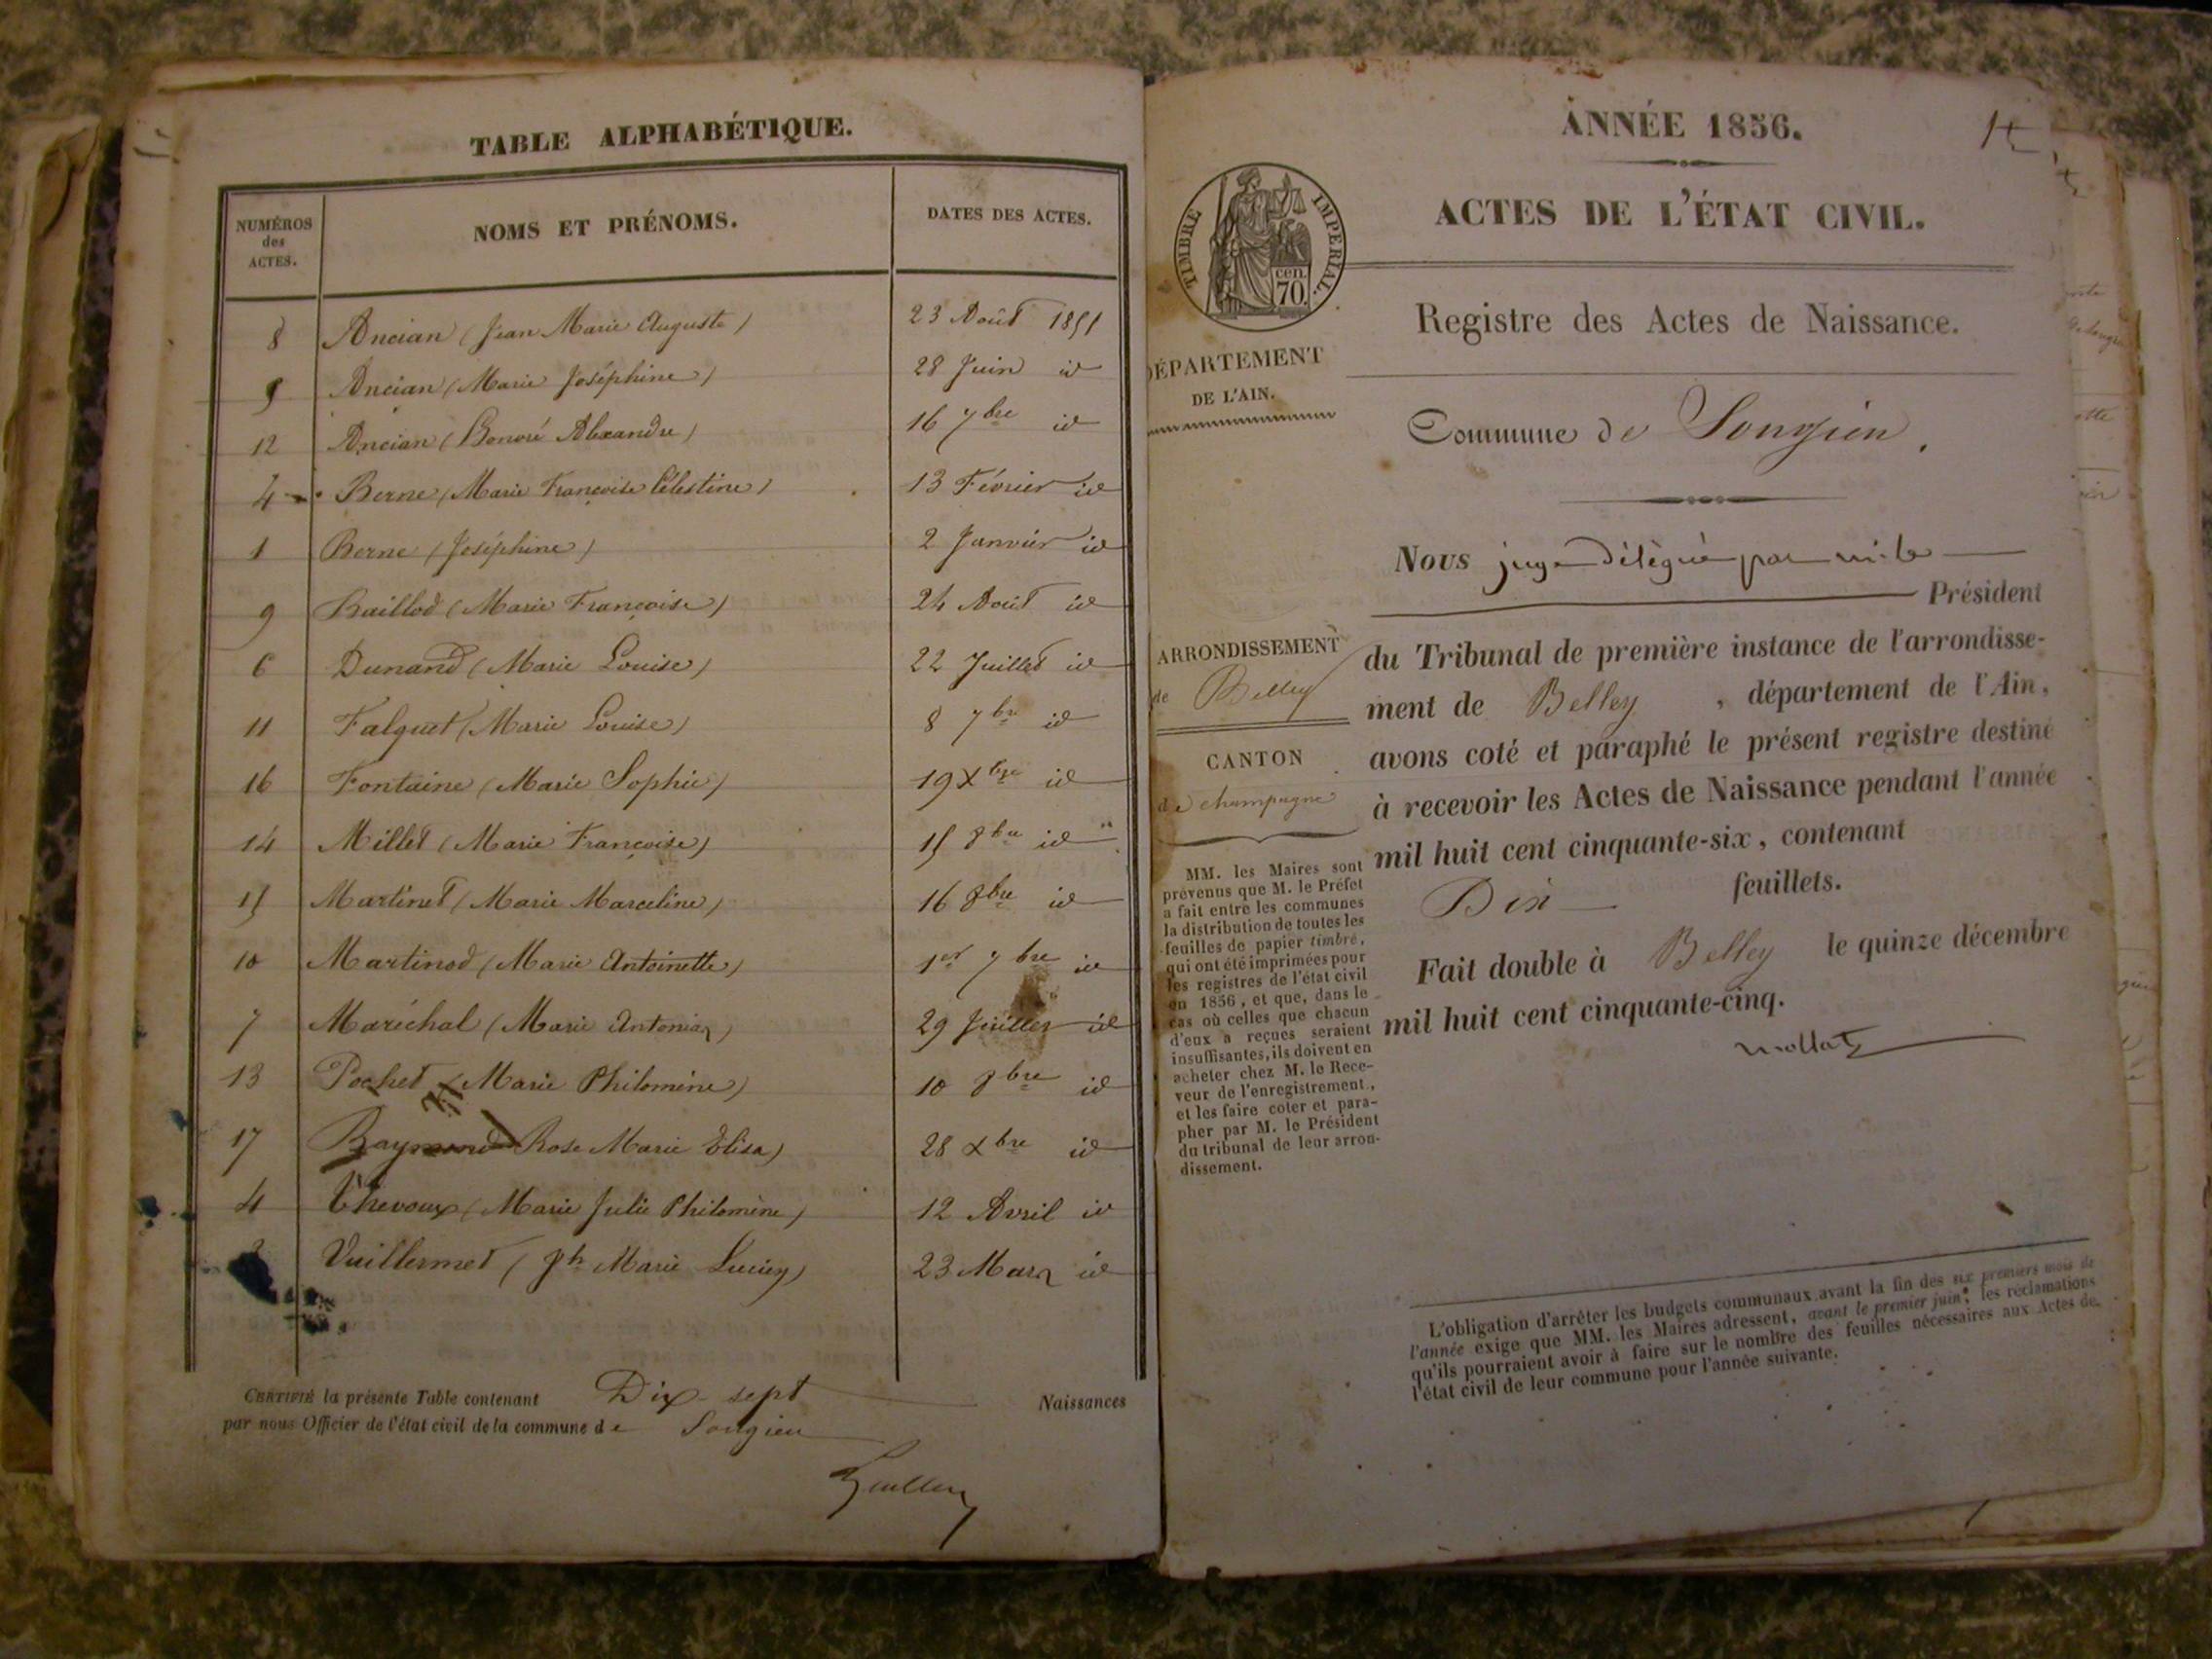 TABLE ALPHABÉTIQUE.
NUMÉROS
des
ACTES.
NOMS ET PRÉNOMS.
DATES DES ACTES.
8 Ancian (Jean Marie Auguste) 23 Août 1855
5 Ancian (Marie Joséphine) 28 Juin id
12 Ancian (Honoré Alexandre) 16 7bre id
Berne (Marie Françoise Célestine) 13 Février id
1 Berne (Joséphine) 2 Janvier id
9 Baillod (Marie Françoise) 24 Août id
6 Dunand (Marie Louise) 22 Juillet id
11 Falquet (Marie Louise) 8 7bre id
16 Fontaine (Marie Sophie) 19 Xbre id
14 Millet (Marie Françoise) 15 8bre id
15 Martinet (Marie Marceline) 16 8bre id
10 Martinod (Marie Antoinette) 1er 7bre id
7 Maréchal (Marie) 29 Juillet id
13 Pochet (Marie Philomène) 10 8bre id
17 Raymond Rose Marie Elisa) 28 Xbre id
4 Thevoux (Marie Julie Philomène) 12 Avril id
Vuillermet (Jh Marie Lucien) 23 Mars id
CERTIFIÉ la présente Table contenant Dix-sept Naissances
par nous Officier de l'état civil de la commune de Songieu
ANNÉE 1856.
ACTES DE L'ÉTAT CIVIL.
TIMBRE IMPERIAL.
cen.
70.
Registre des Actes de Naissance.
DÉPARTEMENT
DE L'AIN.
Commune de Songieu.
Nous juge délégué par mr le
Président
ARRONDISSEMENT
de Belley
CANTON
de champagne
du Tribunal de première instance de l'arrondisse-
ment de Belley, département de l'Ain,
avons coté et paraphé le présent registre destiné
à recevoir les Actes de Naissance pendant l'année
mil huit cent cinquante-six, contenant
Dix feuillets.
Fait double à Belley le quinze décembre
mil huit cent cinquante-cinq.
MM. les Maires sont
prévenus que M. le Préfet
a fait entre les communes
la distribution de toutes les
feuilles de papier timbré,
qui ont été imprimées pour
les registres de l'état civil
en 1856, et que, dans le
cas où celles que chacun
d'eux a reçues seraient
insuffisantes, ils doivent en
acheter chez M. le Rece-
veur de l'enregistrement,
et les faire coter et para-
pher par M. le Président
du tribunal de leur arron-
dissement.
L'obligation d'arrêter les budgets communaux avant la fin des six premiers mois de
l'année exige que MM. les Maires adressent, avant le premier juin, les réclamations
qu'ils pourraient avoir à faire sur le nombre des feuilles nécessaires aux Actes de
l'état civil de leur commune pour l'année suivante.